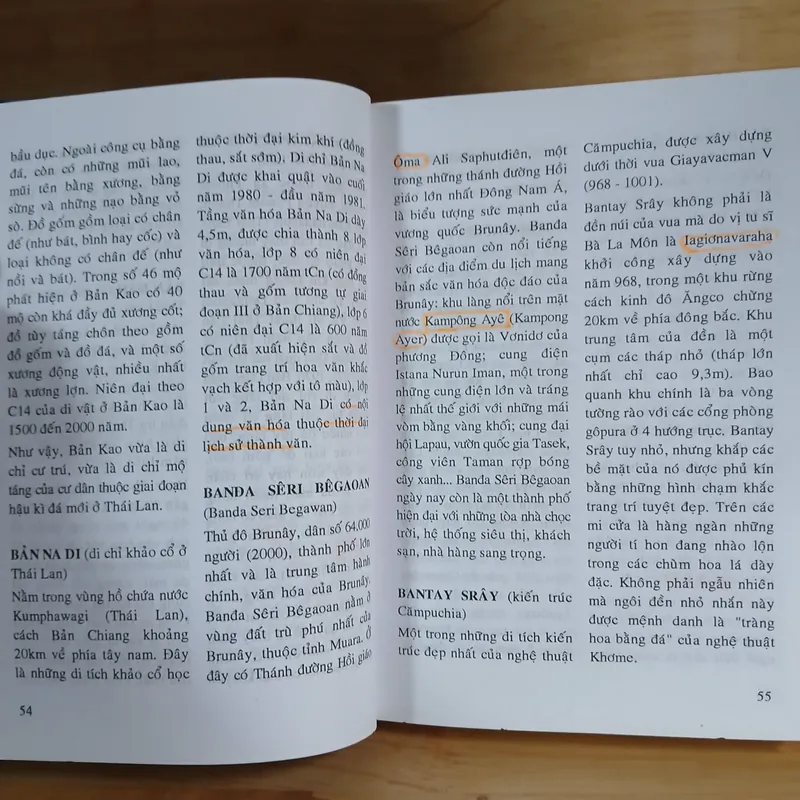 bầu dục. Ngoài công cụ bằng
đá, còn có những mũi lao,
mũi tên bằng xương, bằng
sừng và những nạo bằng vỏ
sò. Đồ gốm gồm loại có chân
đế (như bát, bình hay cốc) và
loại không có chân đế (như
nồi và bát). Trong số 46 mộ
phát hiện ở Bản Kao có 40
mộ còn khá đầy đủ xương cốt;
đồ tùy táng chôn theo gồm
đồ gốm và đồ đá, và một số
xương động vật, nhiều nhất
là xương lợn. Niên đại theo
C14 của di vật ở Bản Kao là
1500 đến 2000 năm.
Như vậy, Bản Kao vừa là di
chỉ cư trú, vừa là di chỉ mộ
táng của cư dân thuộc giai đoạn
hậu kì đá mới ở Thái Lan.
BẢN NA DI (di chỉ khảo cổ ở
Thái Lan)
Nằm trong vùng hồ chứa nước
Kumphawagi (Thái Lan),
cách Bản Chiang khoảng
20km về phía tây nam. Đây
là những di tích khảo cổ học
54
thuộc thời đại kim khí (đồng
thau, sắt sớm). Di chỉ Bản Na
Di được khai quật vào cuối
năm 1980 - đầu năm 1981.
Tầng văn hóa Bản Na Di dày
4,5m, được chia thành 8 lớp
văn hóa, lớp 8 có niên đại
C14 là 1700 năm tCn (có đồng
thau và gốm tương tự giai
đoạn III ở Bản Chiang), lớp 6
có niên đại C14 là 600 năm
tCn (đã xuất hiện sắt và đồ
gốm trang trí hoa văn khắc
vạch kết hợp với tô màu), lớp
1 và 2, Bản Na Di có nội
dung văn hóa thuộc thời đại
lịch sử thành văn.
BANĐA SÊRI BÊGAOAN
(Banda Seri Begawan)
Thủ đô Brunây, dân số 64.000
người (2000), thành phố lớn
nhất và là trung tâm hành
chính, văn hóa của Brunây.
Banđa Sêri Bêgaoan nằm ở
vùng đất trù phú nhất của
Brunây, thuộc tỉnh Muara. Ở
đây có Thánh đường Hồi giáo
Ôma Ali Saphutđiên, một
trong những thánh đường Hồi
giáo lớn nhất Đông Nam Á,
là biểu tượng sức mạnh của
vương quốc Brunây. Banđa
Sêri Bêgaoan còn nổi tiếng
với các địa điểm du lịch mang
bản sắc văn hóa độc đáo của
Brunây: khu làng nổi trên mặt
nước Kampông Ayê (Kampong
Ayer) được gọi là Vơnidơ của
phương Đông; cung điện
Istana Nurun Iman, một trong
những cung điện lớn và tráng
lệ nhất thế giới với những mái
vòm bằng vàng khối; cung đại
hội Lapau, vườn quốc gia Tasek,
công viên Taman rợp bóng
cây xanh... Banđa Sêri Bêgaoan
ngày nay còn là một thành phố
hiện đại với những tòa nhà chọc
trời, hệ thống siêu thị, khách
sạn, nhà hàng sang trọng.
BANTAY SRÂY (kiến trúc
Cămpuchia)
Một trong những di tích kiến
trúc đẹp nhất của nghệ thuật
Cămpuchia, được xây dựng
dưới thời vua Giayavacman V
(968 - 1001).
Bantay Srây không phải là
đền núi của vua mà do vị tu sĩ
Bà La Môn là Iagiơnavaraha
khởi công xây dựng vào
năm 968, trong một khu rừng
cách kinh đô Ăngco chừng
20km về phía đông bắc. Khu
trung tâm của đền là một
cụm các tháp nhỏ (tháp lớn
nhất chỉ cao 9,3m). Bao
quanh khu chính là ba vòng
tường rào với các cổng phòng
gôpura ở 4 hướng trục. Bantay
Srây tuy nhỏ, nhưng khắp các
bề mặt của nó được phủ kín
bằng những hình chạm khắc
trang trí tuyệt đẹp. Trên các
mi cửa là hàng ngàn những
người tí hon đang nhào lộn
trong các chùm hoa lá dày
đặc. Không phải ngẫu nhiên
mà ngôi đền nhỏ nhắn này
được mệnh danh là "tràng
hoa bằng đá" của nghệ thuật
Khơme.
55